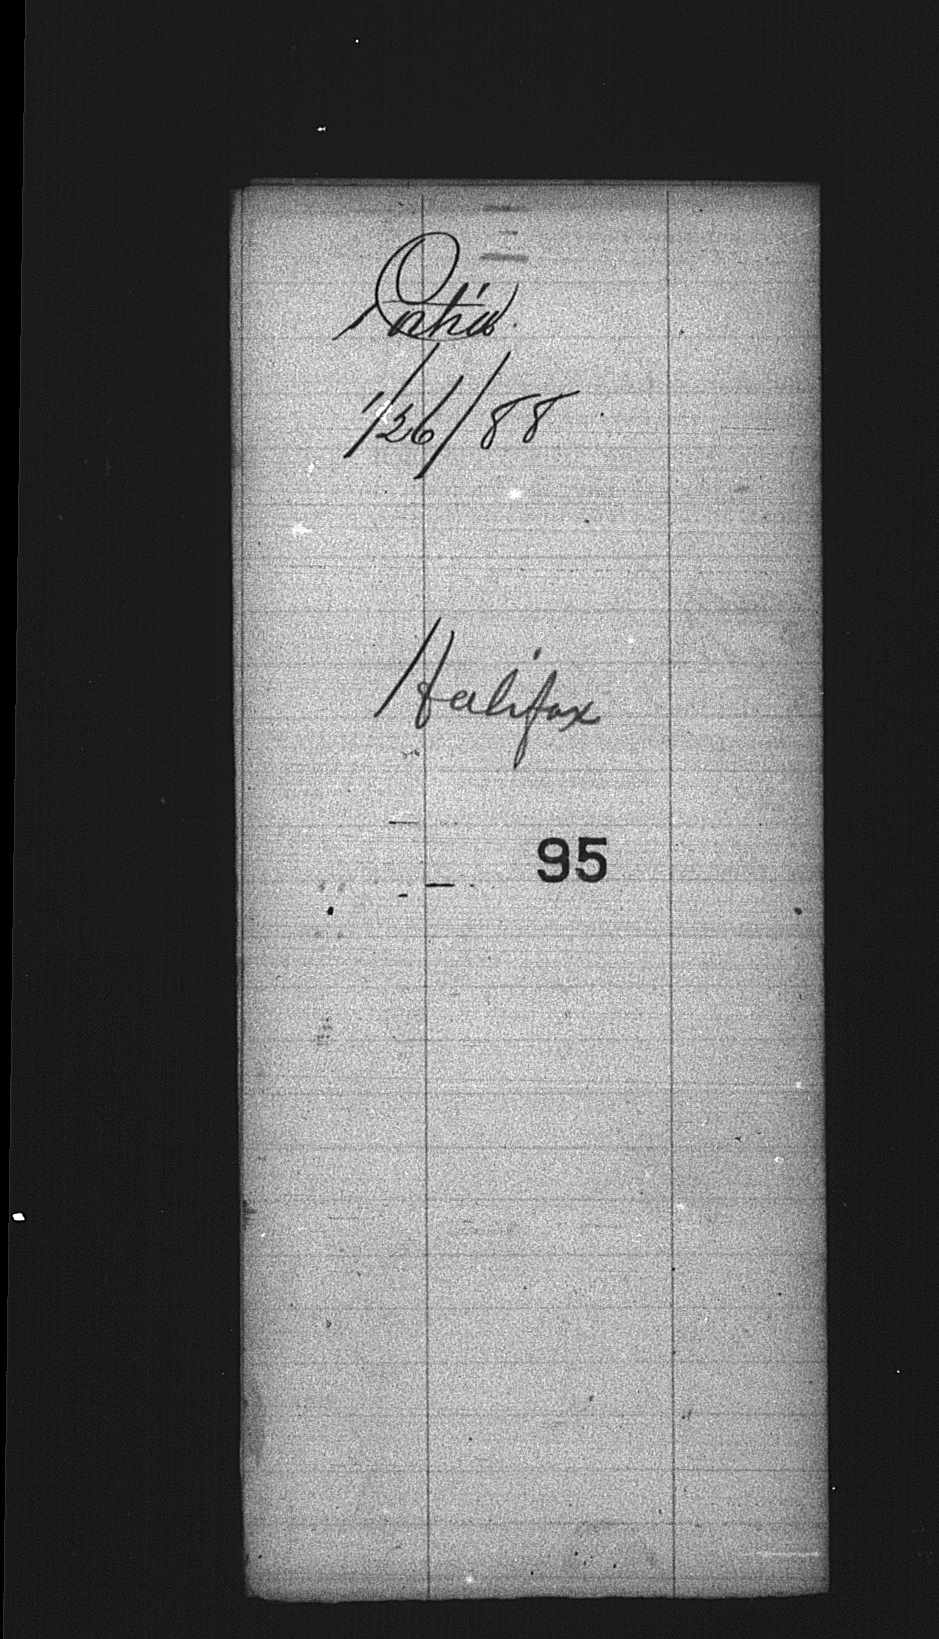 1/26/88
Halifax
95